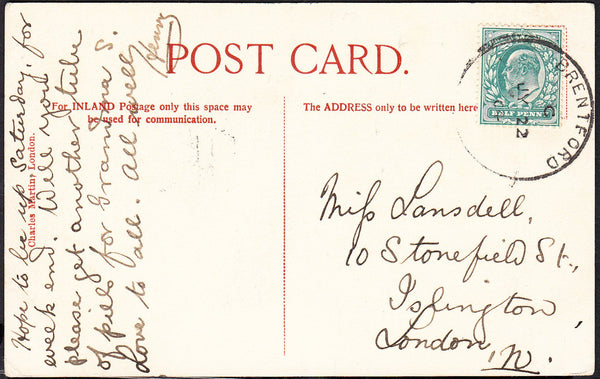 POST CARD.
For INLAND Postage only this space may
be used for communication.
The ADDRESS only to be written here
Charles Martin, London.
Hope to be up Saturday, for
week end. Will you
please get another tube
of pills for Grandma S.
Love to all. All well
HALF PENNY
BRENTFORD
22
Miss Lansdell,
10 Stonefield St.,
Islington
London
N.